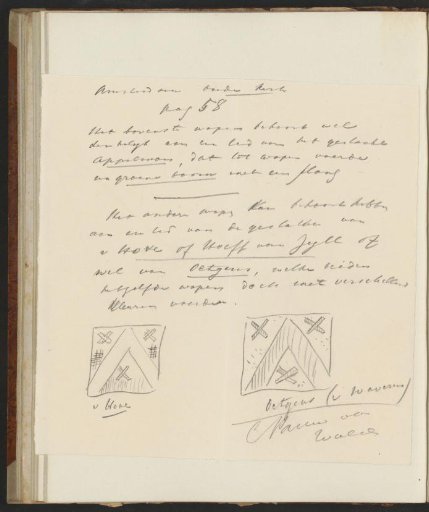 Amsterdam oude kerk
pag 58
Het bovenste wapen behoort wel
aan een lid van het geslacht
Appelman, dat tot wapen voerde
een groene boom met een slang
Het andere wapen kan behoord hebben
aan een lid van de geslachten van
v Hove of Hoeff van Jyll of
wel van Oetgens, welke beiden
hetzelfde wapen doch met verschillende
kleuren voerden.
v Hove
Oetgens (v Waveren)